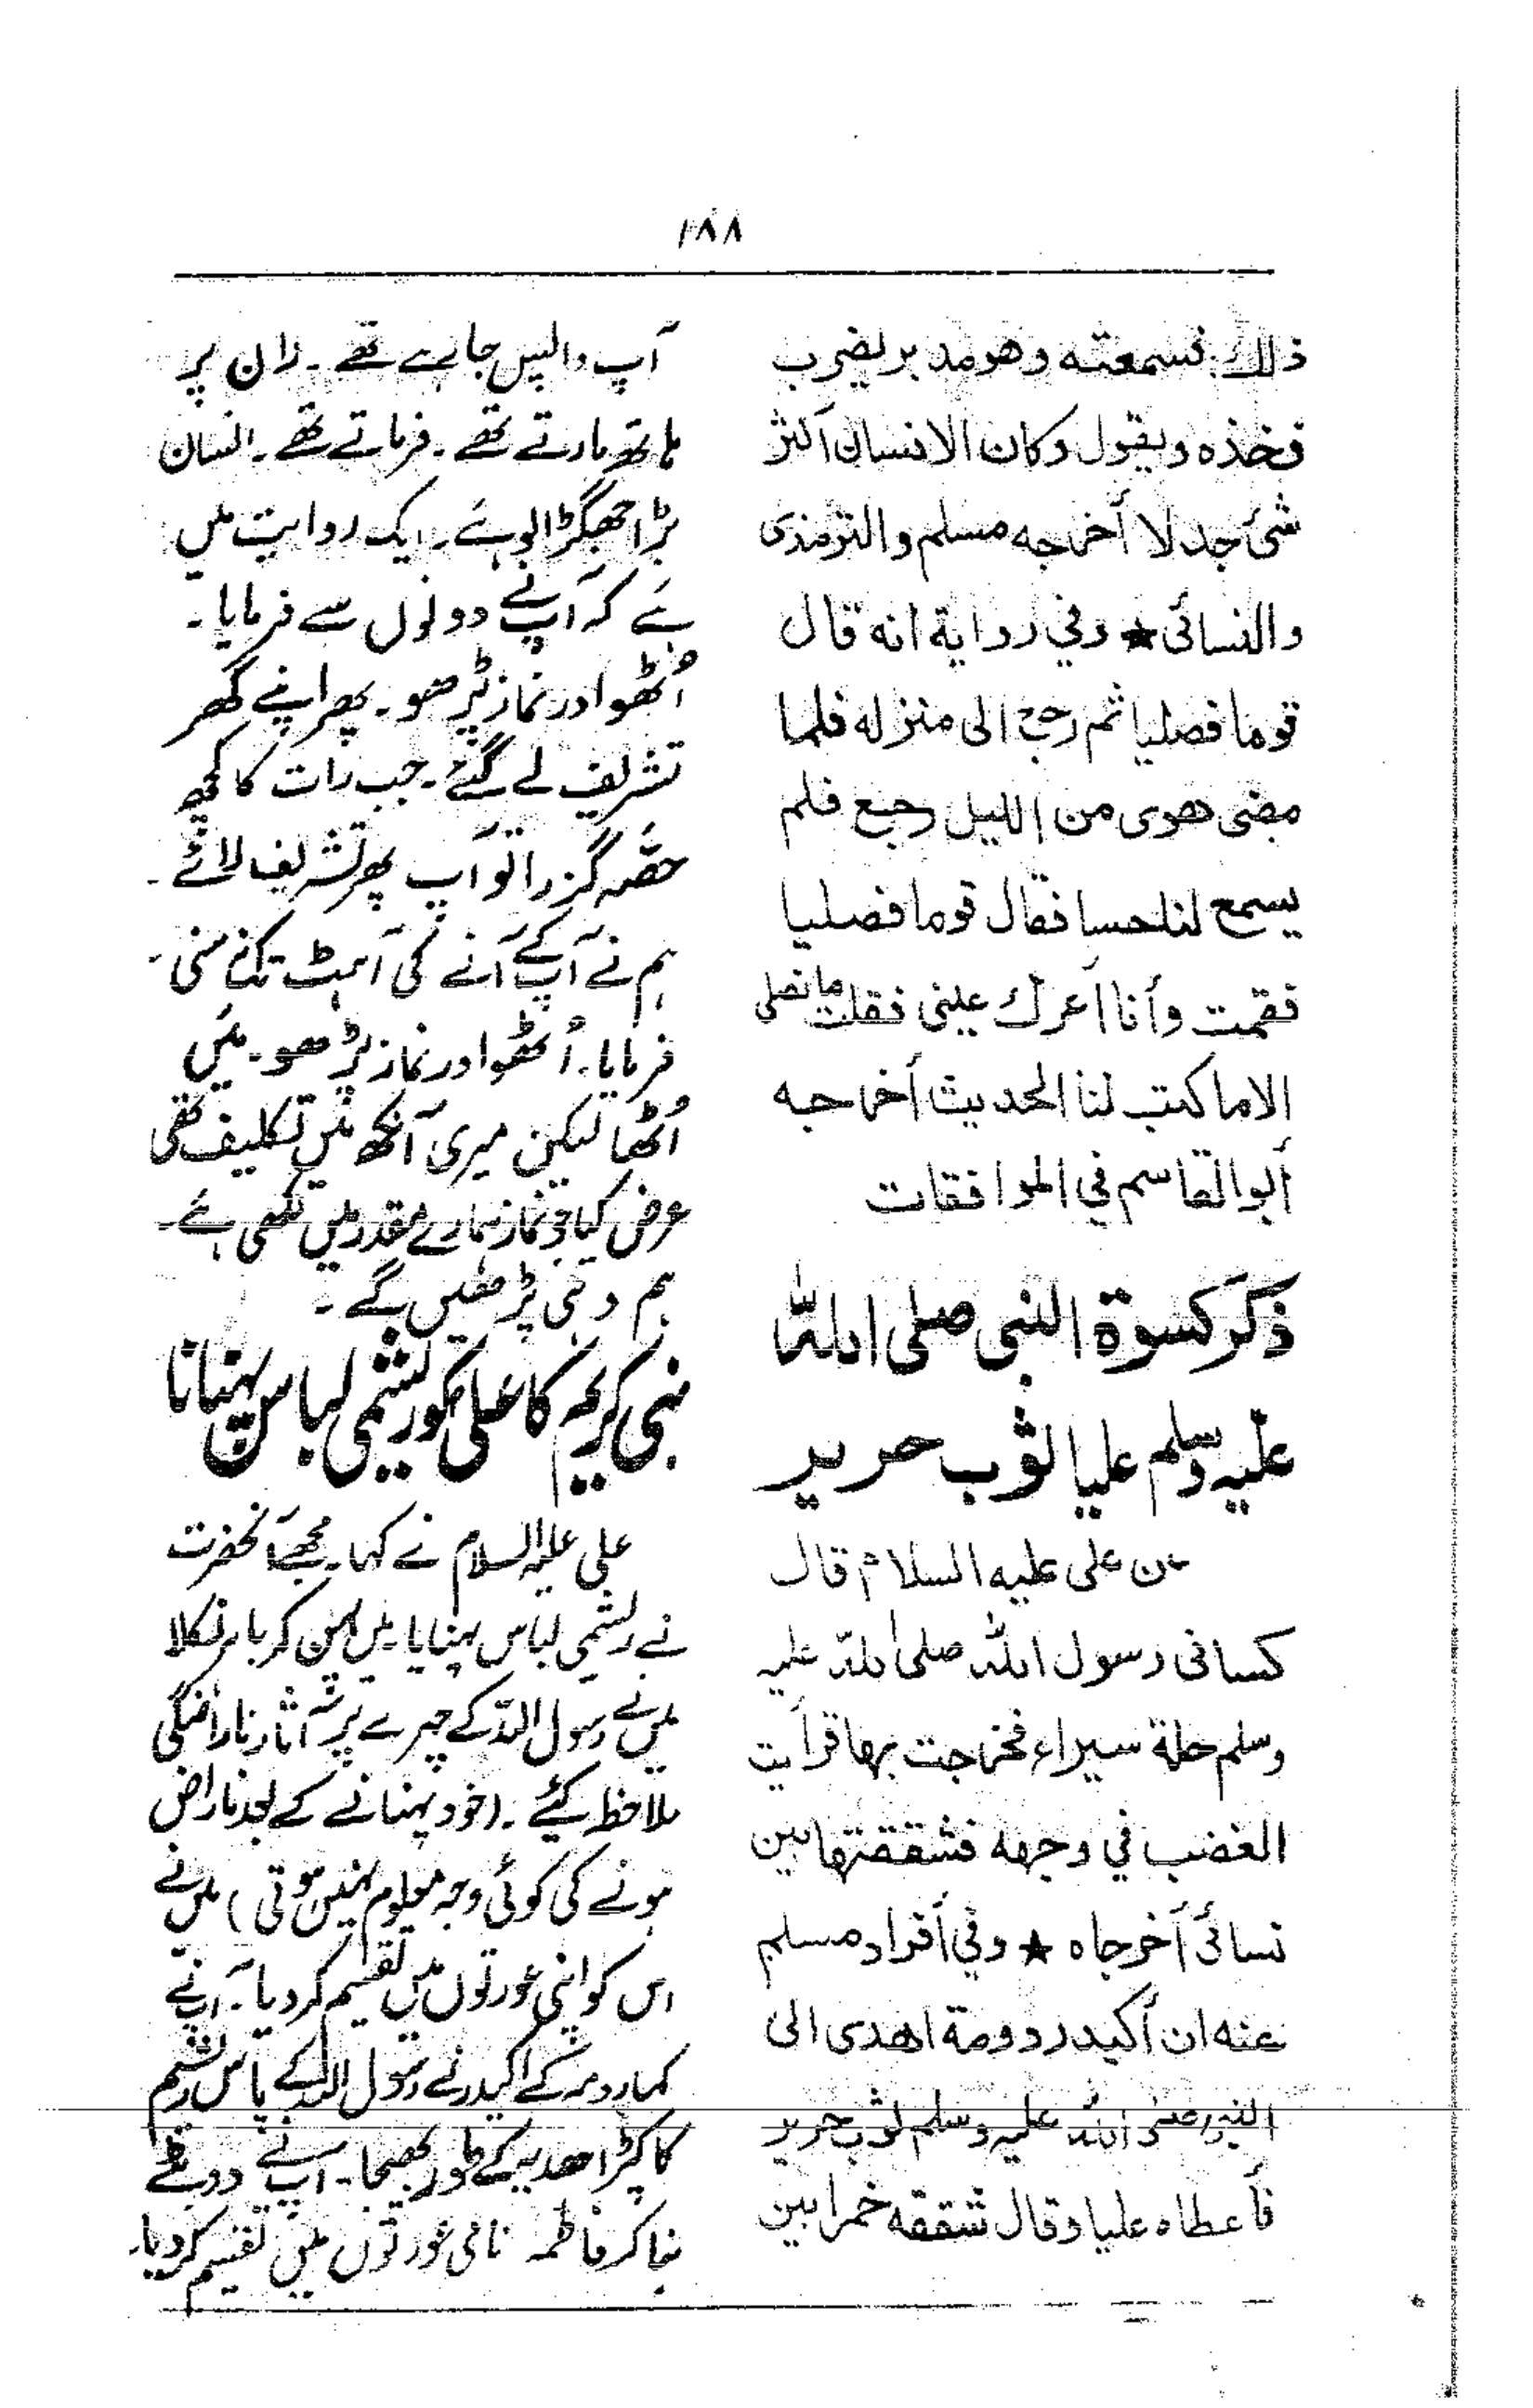 ١٨٨
ذلك فسمعته وهو مدبر يضرب
فخذه ويقول وكان الانسان أكثر
شئ جدلا أخرجه مسلم والترمذى
والنسائى ★ وفي رواية انه قال
قوما فصليا ثم رجع الى منزله فلما
مضى هوى من الليل رجع فلم
يسمع لنا حسا فقال قوما فصليا
فقمت وأنا أعرك عينى فقلت ما نصلى
الاما كتب لنا الحديث أخرجه
أبو القاسم في الموافقات
ذكر كسوة النبى صلى الله
عليه وسلم عليا ثوب حرير
عن على عليه السلام قال
كسانى رسول الله صلى الله عليه
وسلم حلة سيراء فخرجت بها فرأيت
الغضب في وجهه فشققتها بين
نسائى أخرجاه ★ وفي أفراد مسلم
عنه ان أكيدر دومة اهدى الى
النبى صلى الله عليه وسلم ثوب حرير
فأعطاه عليا وقال شققه خمرا بين
آپ واپس جا رہے تھے ۔ ران پر
ہاتھ مارتے تھے ۔ فرماتے تھے ۔ انسان
بڑا جھگڑالو ہے ۔ ایک روایت میں
ہے کہ آپ نے دونوں سے فرمایا ۔
اُٹھو اور نماز پڑھو ۔ پھر اپنے گھر
تشریف لے گئے ۔ جب رات کا کچھ
حصّہ گزرا تو آپ پھر تشریف لائے ۔
ہم نے آپ کے آنے کی آہٹ تک نہ سنی ۔
فرمایا ۔ اُٹھو اور نماز پڑھو ۔ میَں
اُٹھا لیکن میری آنکھ میں تکلیف تھی
عرض کیا جو نماز ہمارے مقدر میں لکھی ہے ۔
ہم وہی پڑھیں گے ۔
نبی کریم کا علی کو ریشمی لباس پہنانا
علی علیہ السلام نے کہا ۔ مجھے آنحضرت
نے ریشمی لباس پہنایا ۔ میں پہن کر باہر نکلا
میں نے رسول اللہ کے چہرے پر آثار ناراضگی
ملاحظہ کیئے ۔ (خود پہنانے کے بعد ناراض
ہونے کی کوئی وجہ معلوم نہیں ہوتی) میں نے
اس کو اپنی عورتوں میں تقسیم کر دیا ۔ آپ نے
کہا ردومہ کے اکیدر نے رسول اللہ کے پاس ریشم
کا کپڑا ھدیہ کے طور بھیجا ۔ آپ نے دوپٹے
بنا کر فاطمہ نامی عورتوں میں تقسیم کر دیا ۔